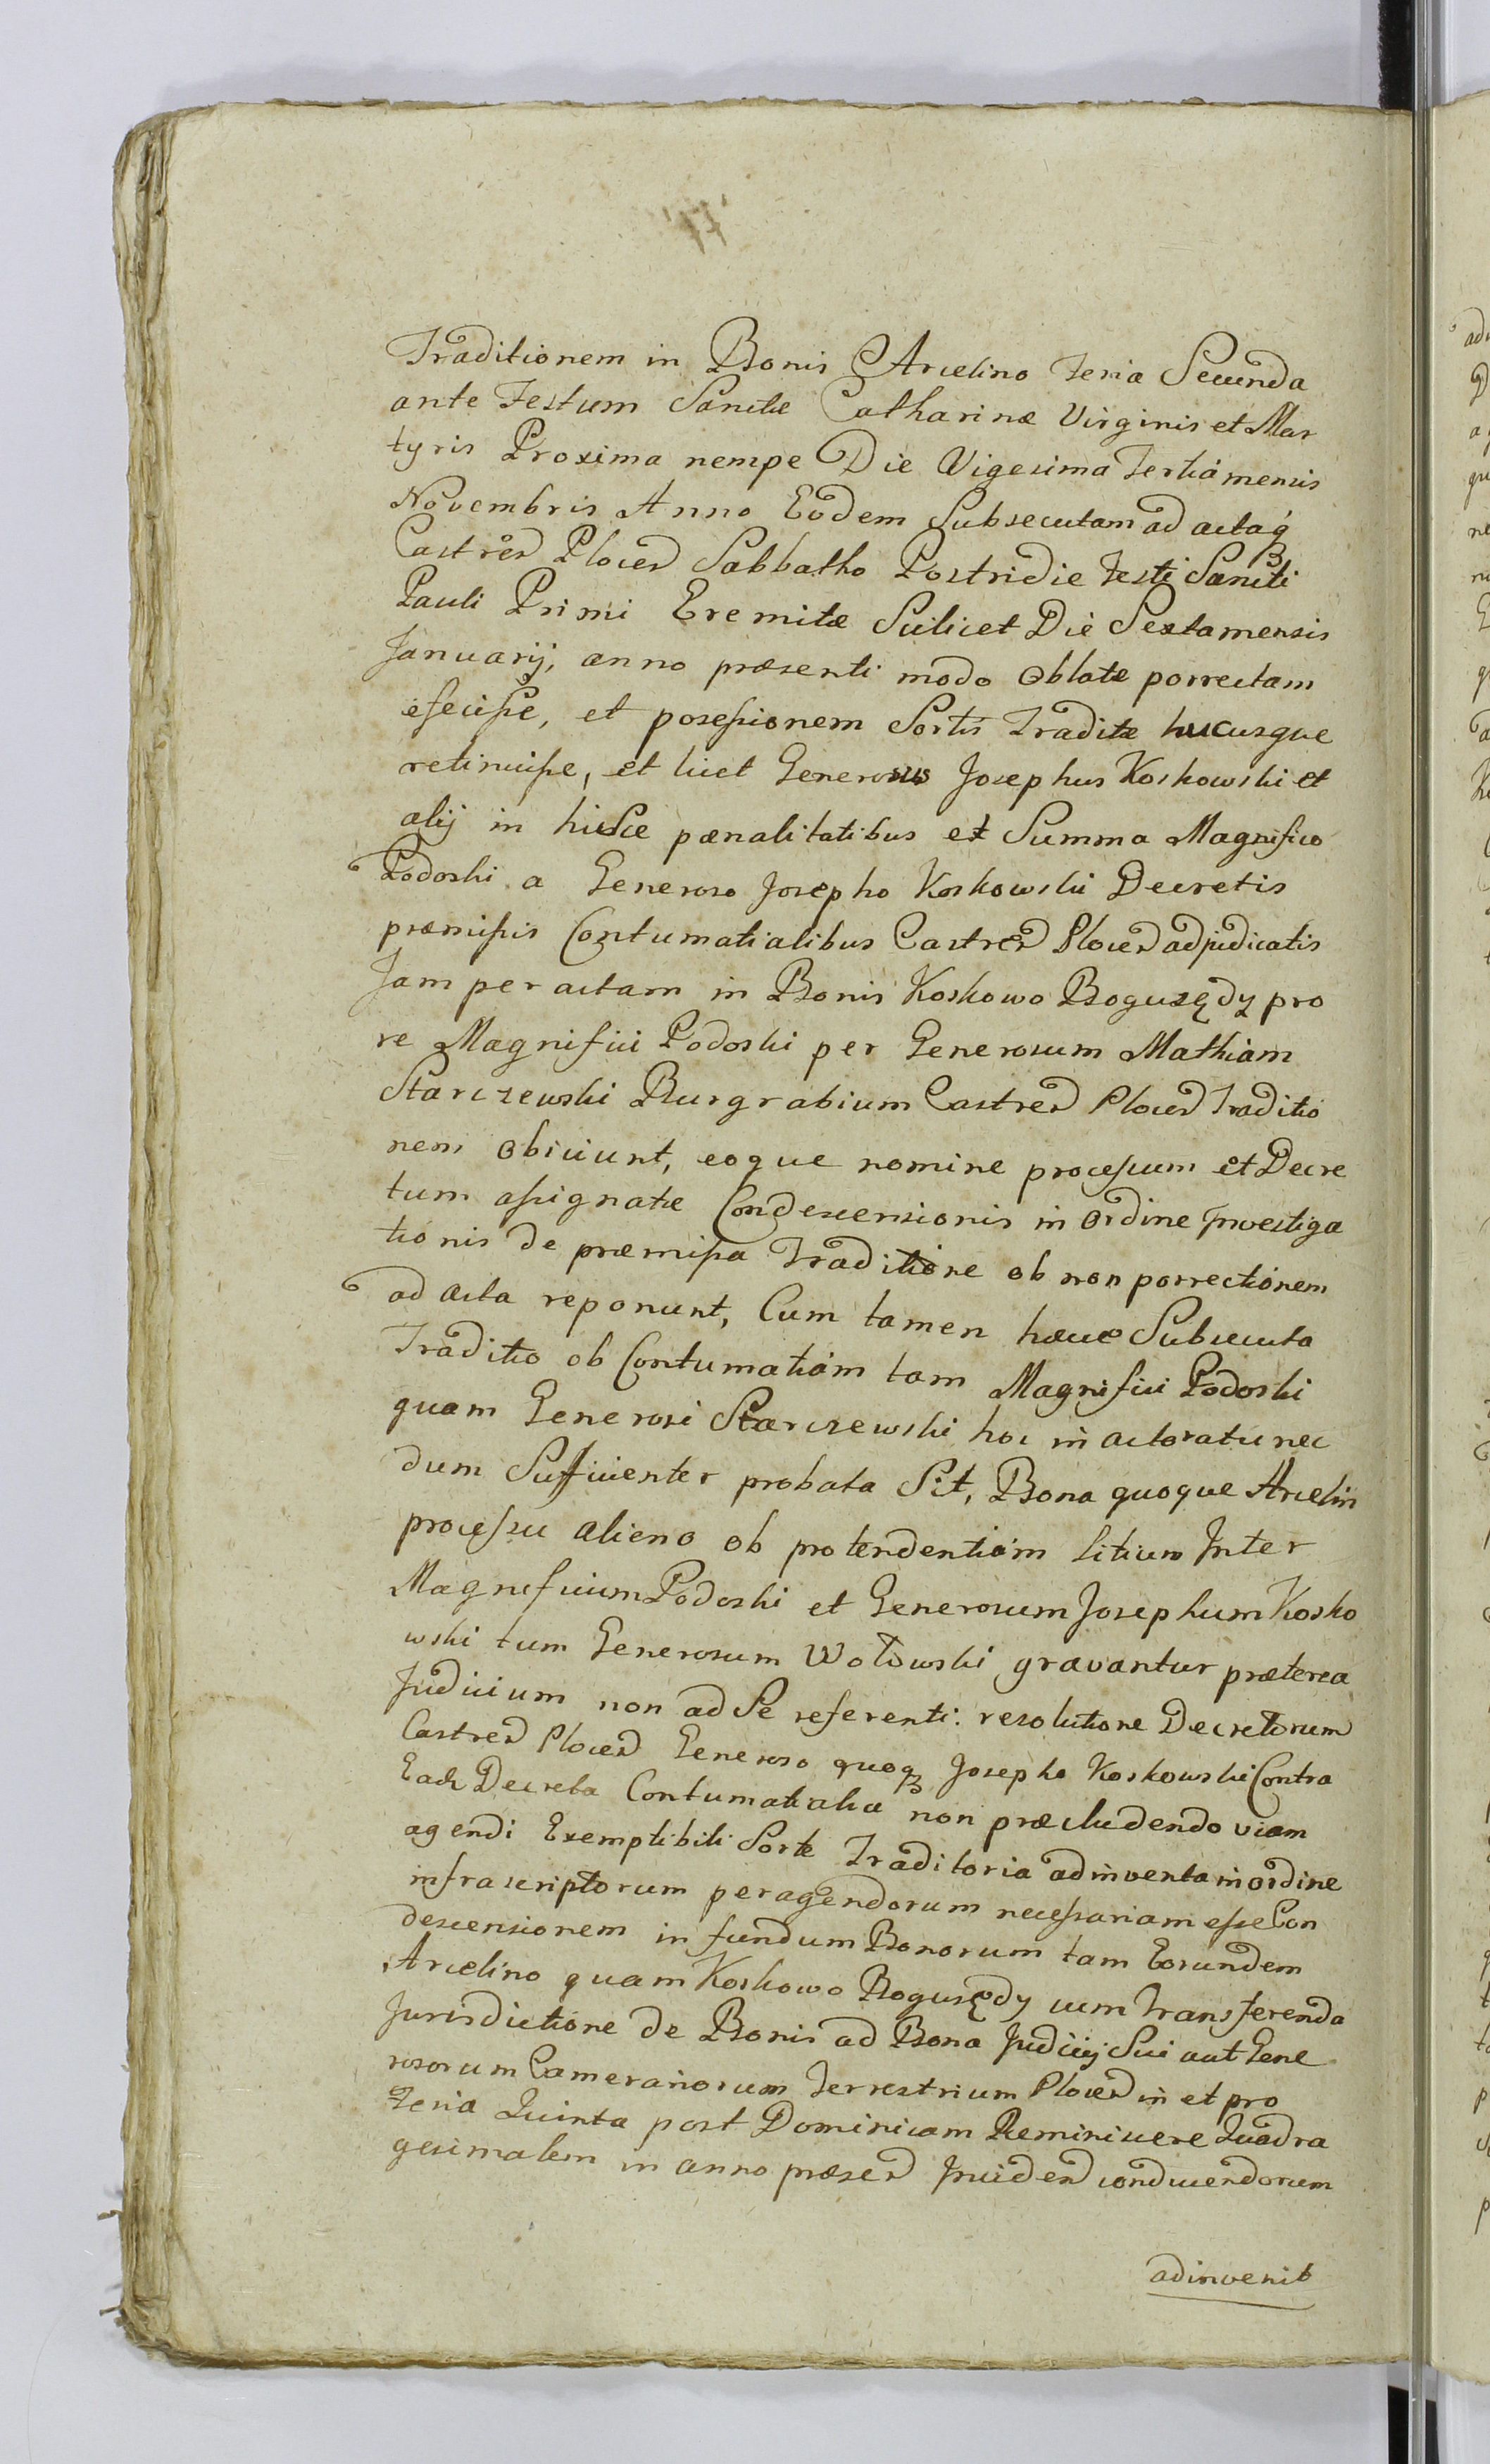 Traditionem in Bonis Arcelino Feria Secunda
ante Festum Sanctæ Catharinæ Virginis et Mar
tyris Proxima nempe Die Vigesima Tertia mensis
Novembris Anno Eodem Subsecutam ad actaq̨
Castren Plocen Sabbatho Postridie Festi Sancti
Pauli Primi Eremitæ Scilicet Die Sexta mensis
Januarij, anno præsenti modo Oblatæ porrectam
efecisse, et posessionem Sortis Traditæ hucusque
retinuisse, et licet Generosus Josephus Koskowski et
alij in hisce pænalitatibus et Summa Magnifico
Podoski a Generoso Josepho Koskowski Decretis
præmissis Contumatialibus Castren Plocen adjudicatis
Jam peractam in Bonis Koskowo Bogusędy pro
re Magnifici Podoski per Generosum Mathiam
Starczewski Burgrabium Castren Plocen Traditio
nem obiiciunt, eoque nomine processum et Decre
tum assignatæ Condescensionis in ordine Investiga
tionis de præmissa Traditione ob non porrectionem
ad acta reponunt, Cum tamen hæcce Subsecuta
Traditio ob Contumatiam tam Magnifici Podoski
quam Generosi Starczewski hoc in actoratu nec
dum Sufficienter probata Sit, Bona quoque Arcelin
processu alieno ob protendentiam litium Inter
Magnificum Podoski et Generosum Josephum Kosko
wski tum Generosum Wołowski gravantur præterea
Judicium non ad Se referenti: resolutione Decretorum
Castren Plocen Generoso quoq Josepho Koskowski Contra
Eadē Decreta Contumatialia non præcludendo viam
agendi Exemptibili Sorte Traditoria adinventa in ordine
infrascriptorum peragendorum necessariam esse Con
descensionem in fundum Bonorum tam Eorundem
Arcelino quam Koskowo Bogusędy cum Transferenda
Jurisdictione de Bonis ad Bona Judicij Sui aut Gene
rosorum Camerariorum Terrestrium Plocen in et pro
Feria Quinta post Dominicam Reminiscere Quadra
gesimalem in anno præsen Inciden conducendorum
adinvenit